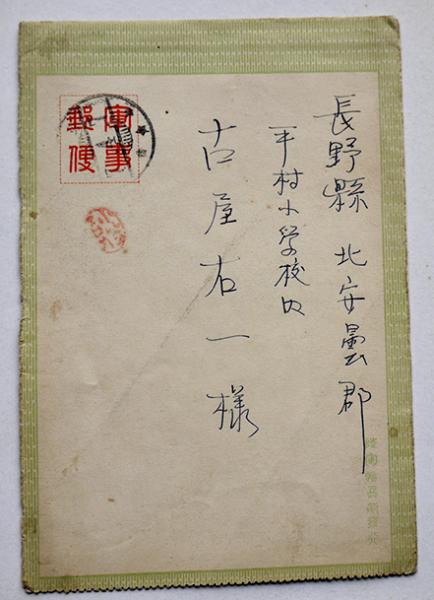 軍事
郵便
長野縣 北安曇郡
平村小学校内
古屋右一様